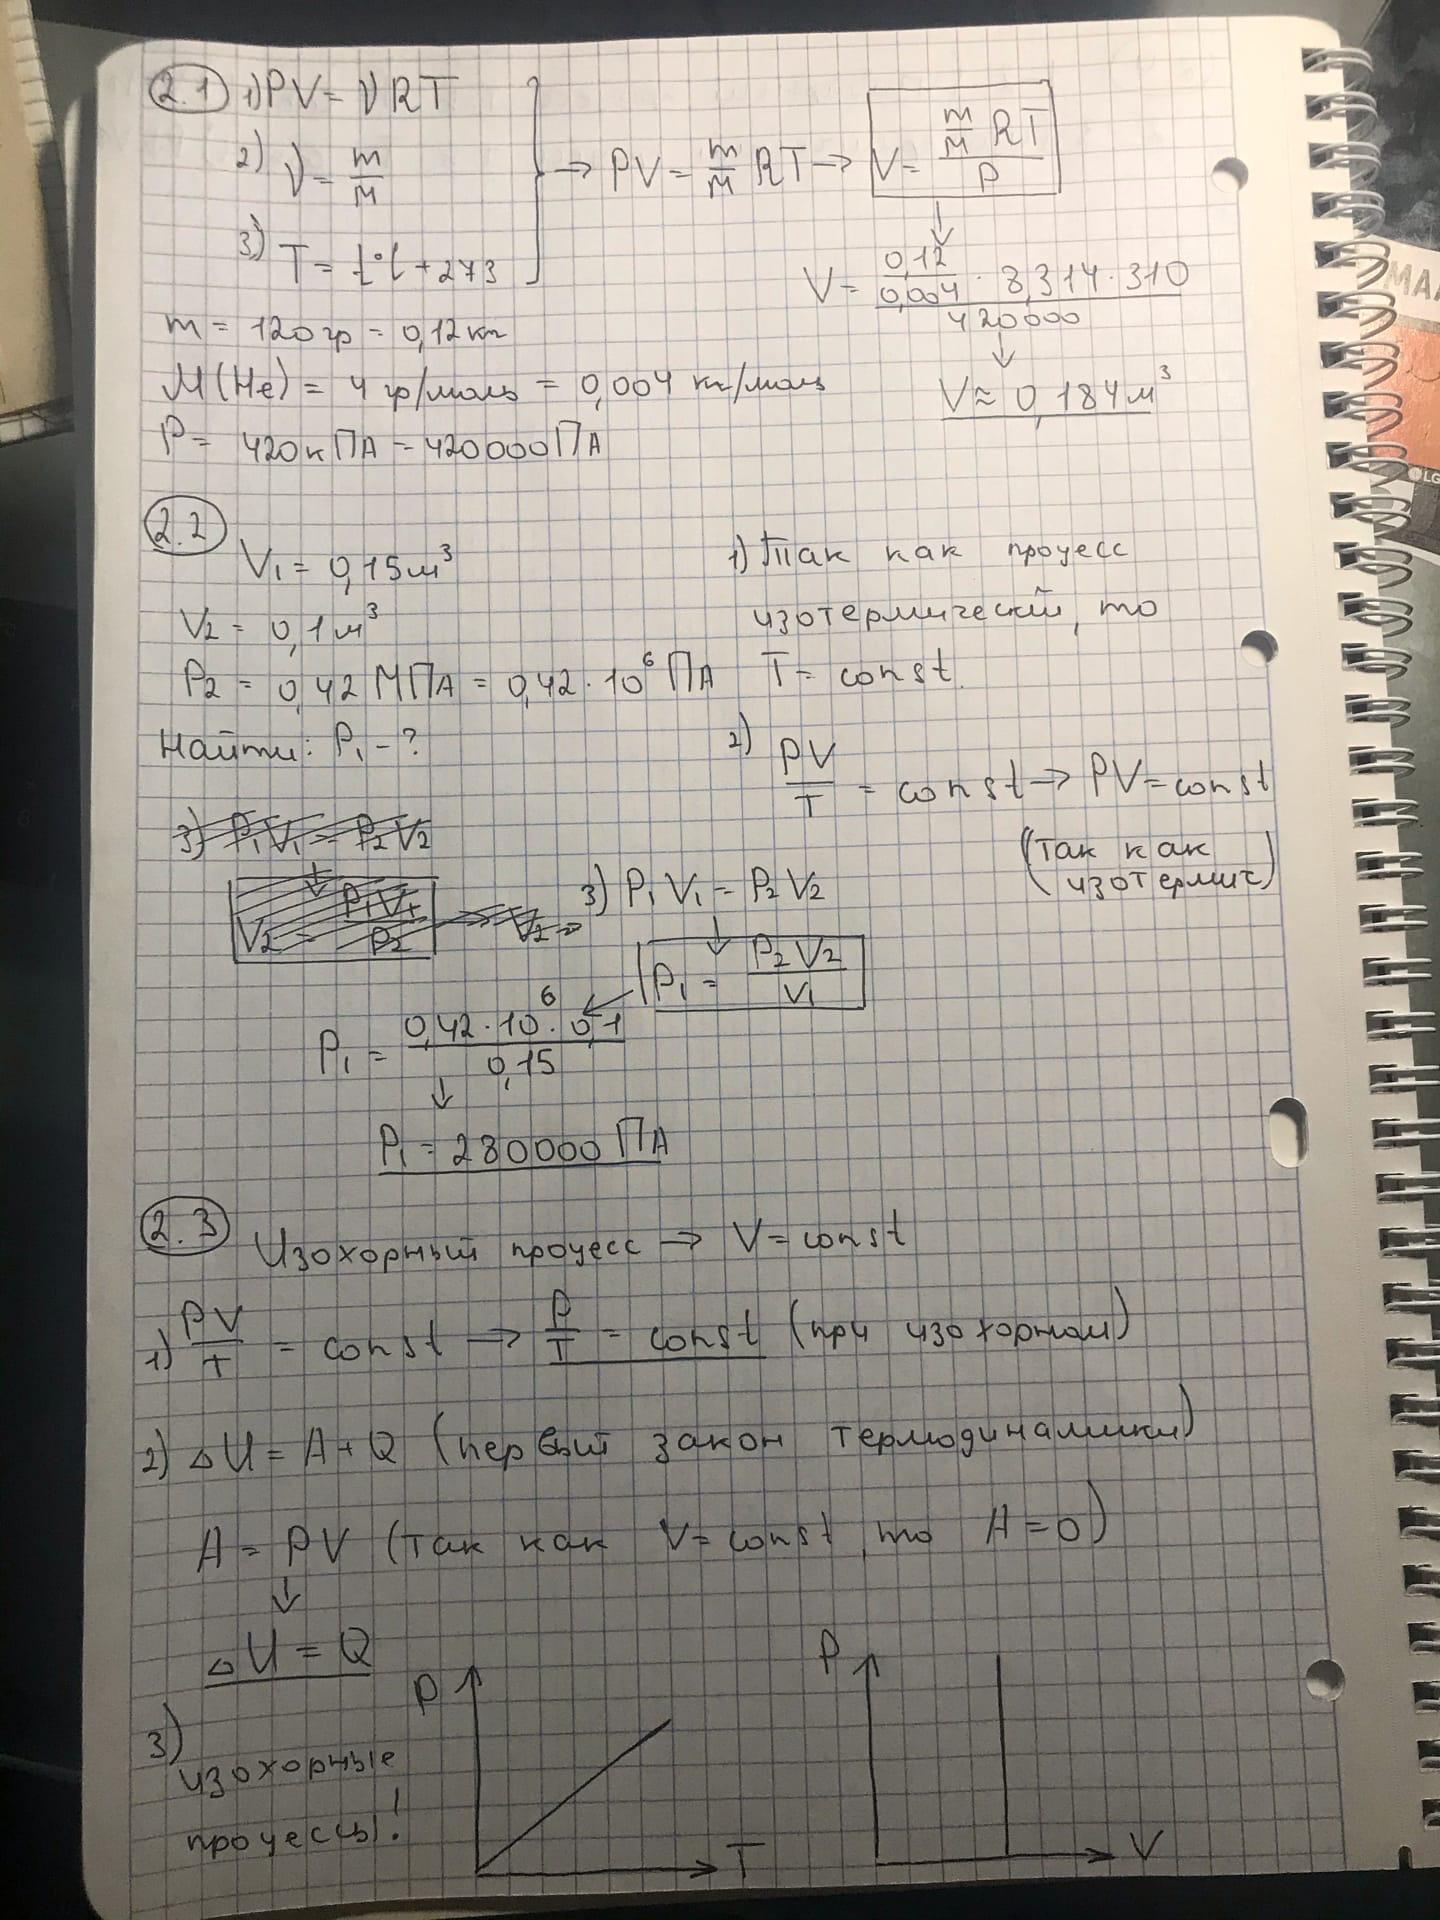 2.1 1) PV = νRT
2) ν = m/M
3) T = t°C + 273
→ PV = m/M RT → V = (m/M RT)/P
V = (0,12/0,004 · 8,314 · 310)/420000
m = 120 гр = 0,12 кг
M(He) = 4 гр/моль = 0,004 кг/моль
V ≈ 0,184 м³
P = 420 кПА = 420000 ПА
2.2
V₁ = 0,15 м³
V₂ = 0,1 м³
P₂ = 0,42 МПА = 0,42 · 10⁶ ПА
Найти: P₁ - ?
1) Так как процесс
изотермический, то
T = const.
2) PV/T = const → PV = const
(так как
изотермич)
3) P₁V₁ = P₂V₂
V₂ = P₁V₁/P₂ → V₂ =
3) P₁V₁ = P₂V₂
P₁ = P₂V₂/V₁
P₁ = 0,42 · 10⁶ · 0,1/0,15
P₁ = 280000 ПА
2.3 Изохорный процесс → V = const
1) PV/T = const → P/T = const (при изохорном)
2) ΔU = A + Q (первый закон термодинамики)
A = PV (так как V = const, то A = 0)
ΔU = Q
3)
изохорные
процессы!
P
T
P
V
MA
LG